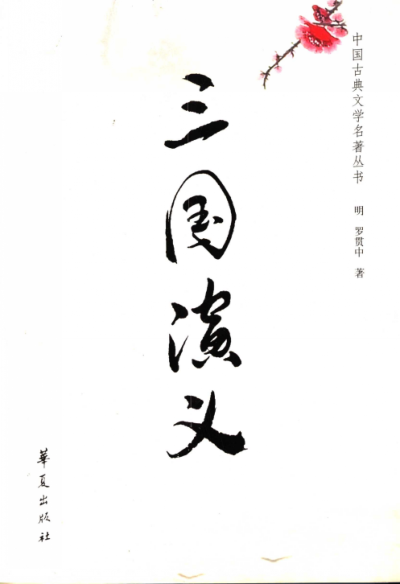 中国古典文学名著丛书
明 罗贯中 著
三国演义
華夏出版社